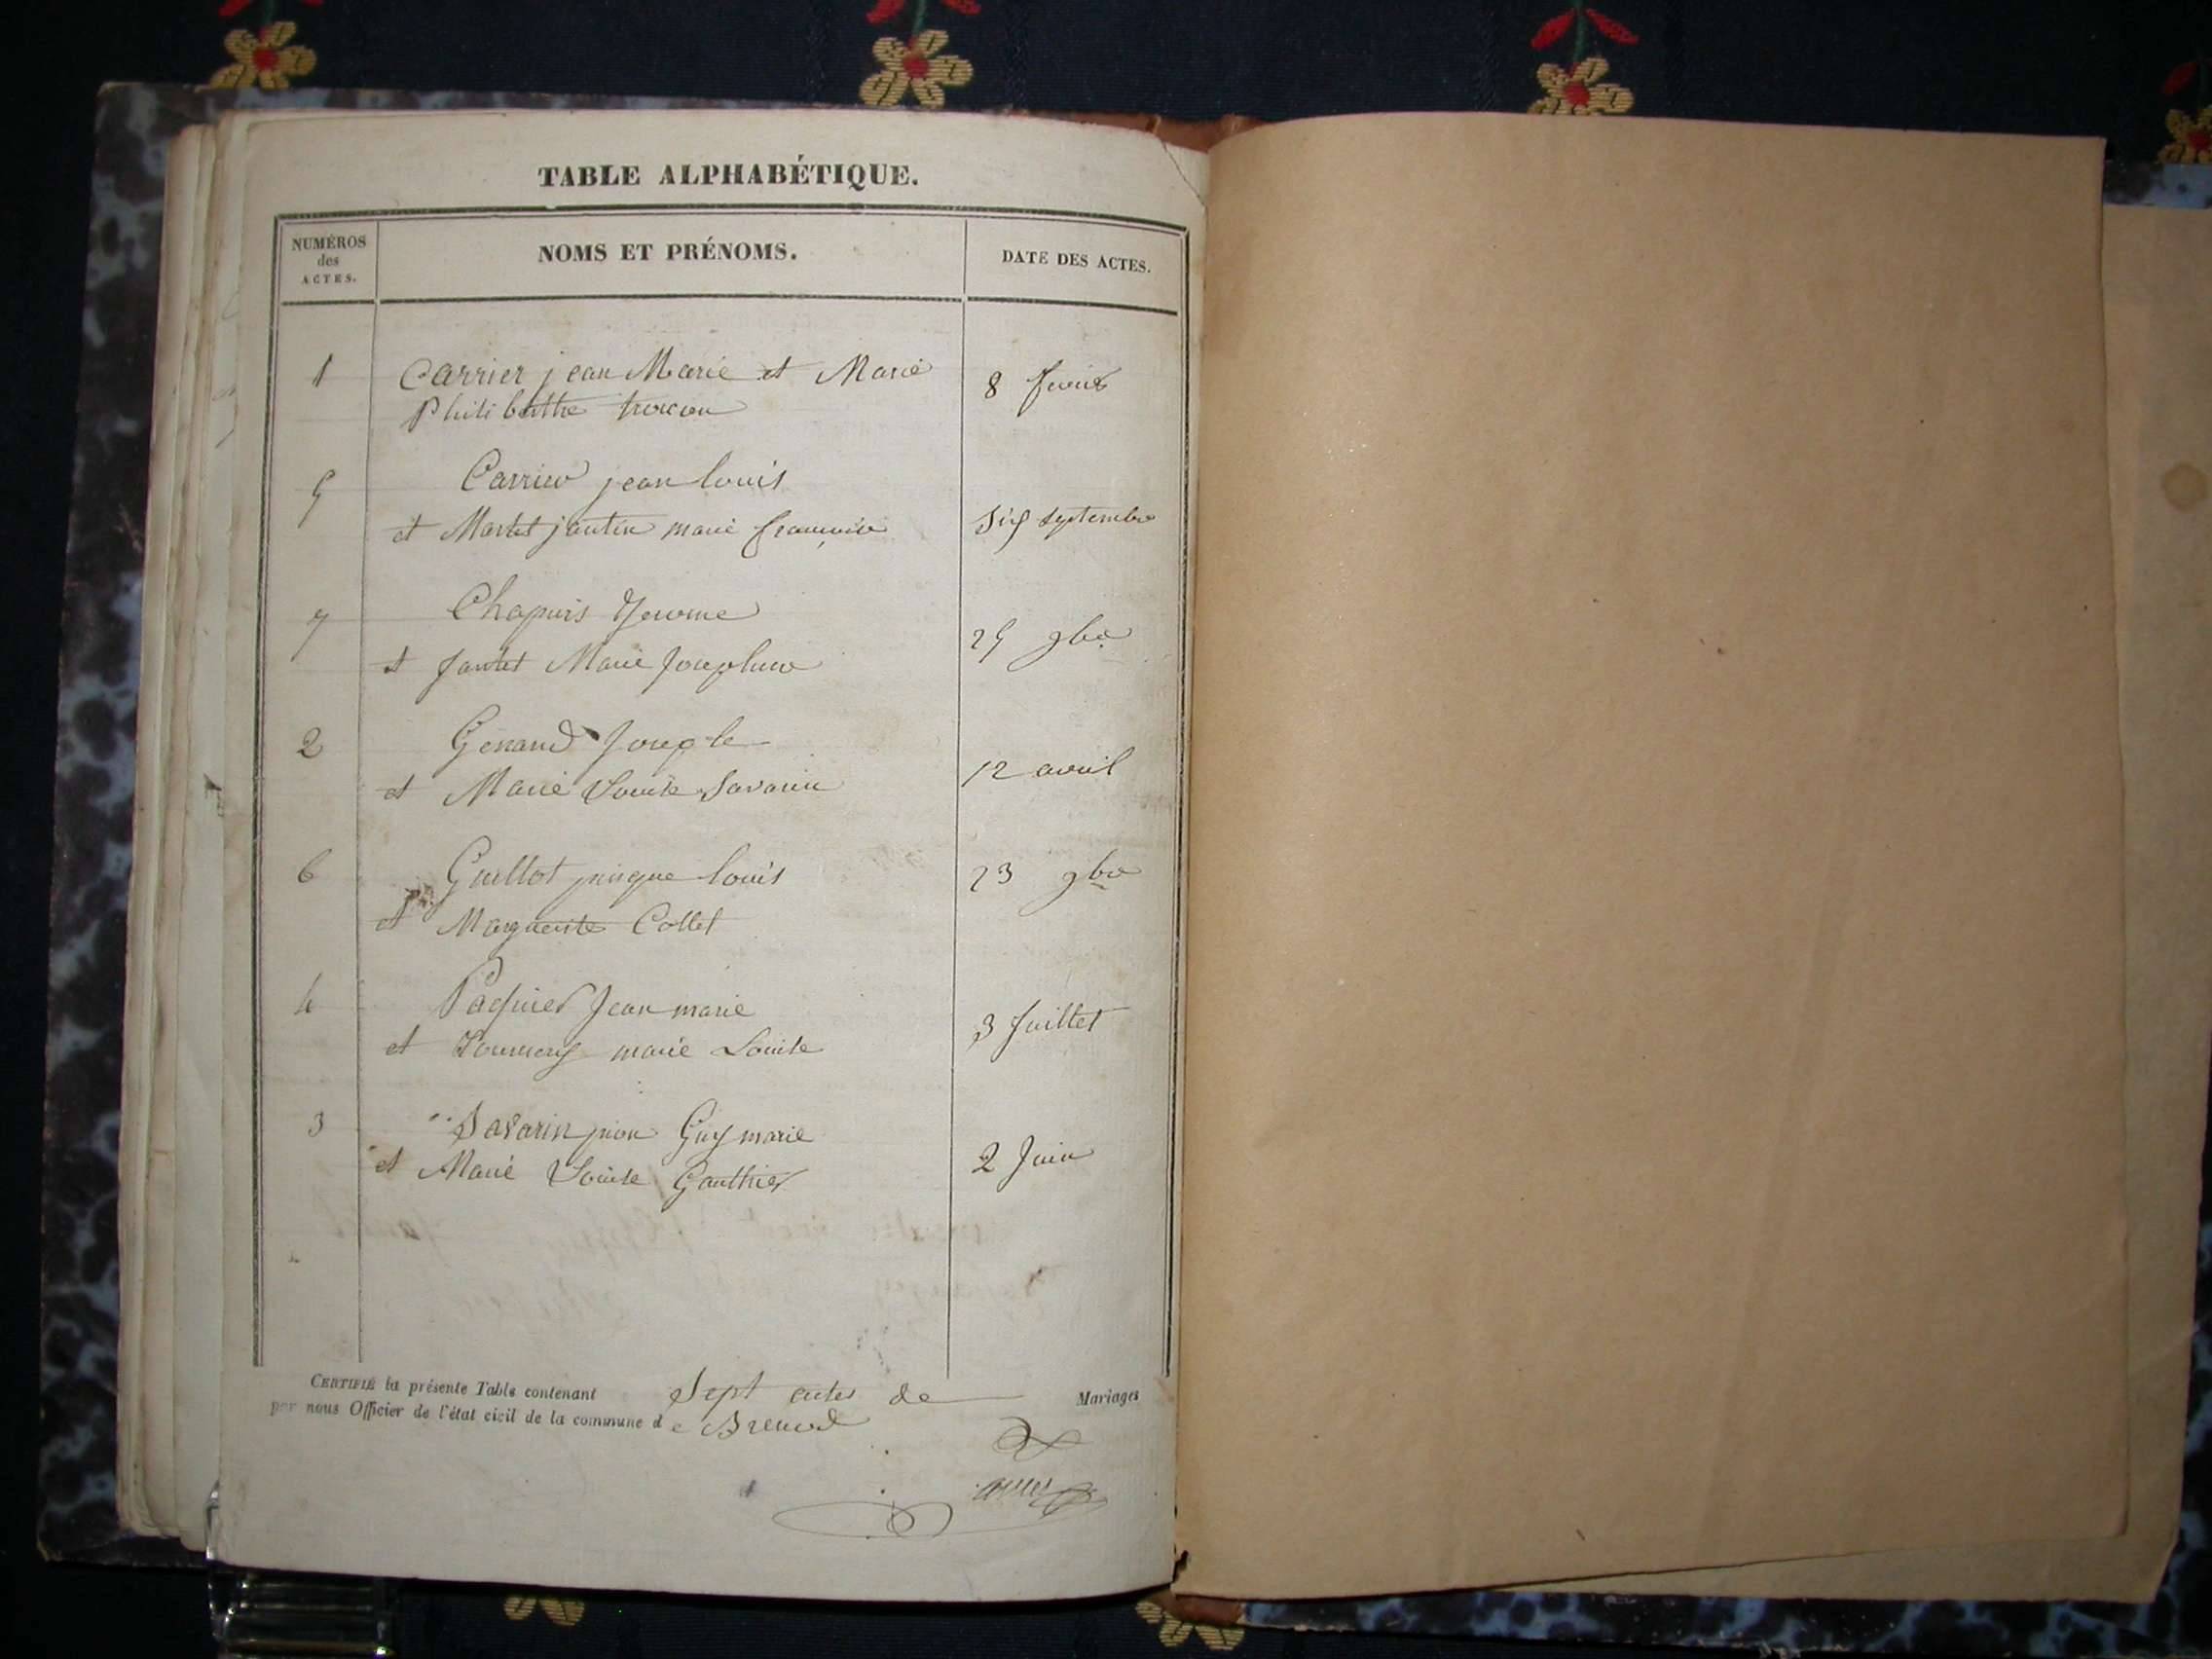 TABLE ALPHABÉTIQUE.
NUMÉROS
des
ACTES.
NOMS ET PRÉNOMS.
DATE DES ACTES.
1
Carrier jean Marie et Marie
8
Philiberthe
5
Carrier jean louis
et Martet jantin marie françoise
Six septembre
7
Chapuis Jerome
25 9bre
et Jantet Marie Josephine
2
Genand Joseph
12 avril
et Marie Louise Savarin
6
Guillot louis
23 9bre
et Marguerite Collet
4
Paquier Jean marie
3 Juillet
et marie Louise
3
Savarin pion Guy marie
2 Juin
et Marie Louise Gauthier
CERTIFIÉ la présente Table contenant Sept actes de Mariages
par nous Officier de l'état civil de la commune de Brenod